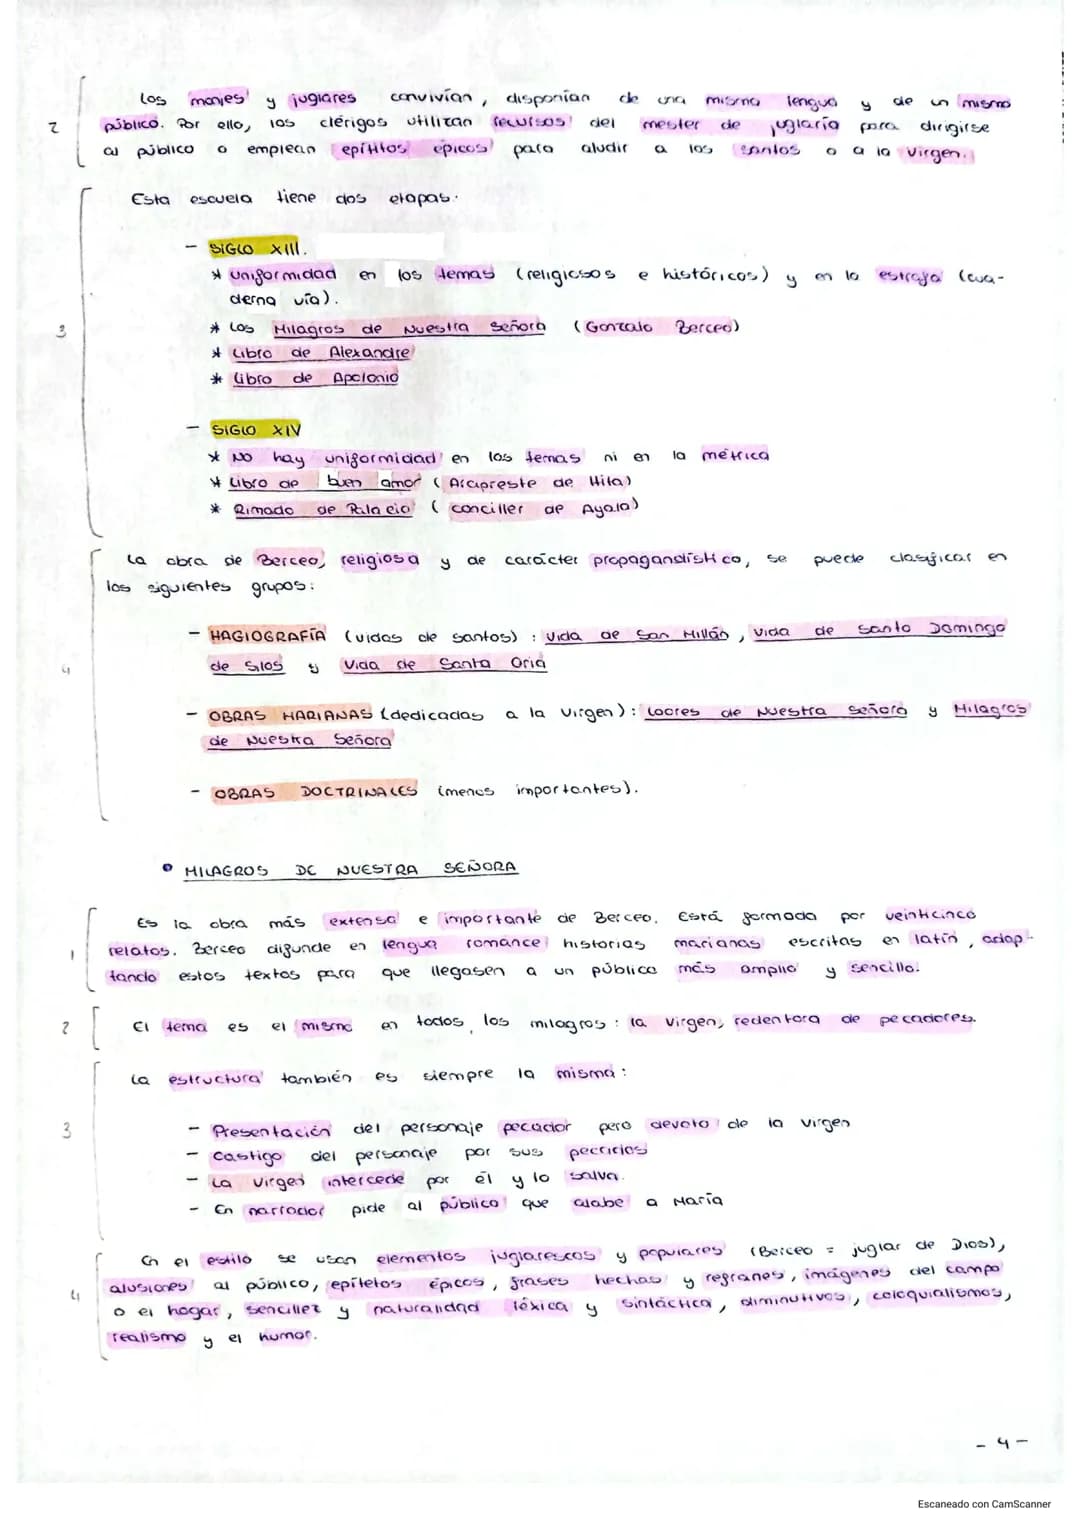 Los monjes y juglares convivían, disponían de una misma lengua y de un mismo
2 público. Por ello, los clérigos utilizan recursos del mester de juglaría para dirigirse
al público o emplean epítitos épicos para aludir a los santos o a la Virgen.
Esta escuela tiene dos etapas:
- SIGLO XIII.
* Uniformidad en los temas (religiosos e históricos) y en la estrofa (cua-
derna vía).
3
* Los Milagros de Nuestra Señora (Gonzalo Berceo)
* Libro de Alexandre
* Libro de Apolonio
- SIGLO XIV
* No hay uniformidad en los temas ni en la métrica
* Libro de buen amor (Arcipreste de Hita)
* Rimado de Palacio (conciller de Ayala)
La obra de Berceo, religiosa y de carácter propagandístico, se puede clasificar en
los siguientes grupos:
- HAGIOGRAFÍA (vidas de santos): Vida de San Millán, Vida de Santo Domingo
4 de Silos y Vida de Santa Oria
- OBRAS MARIANAS (dedicadas a la Virgen): Loores de Nuestra Señora y Milagros
de Nuestra Señora
- OBRAS DOCTRINALES (menos importantes).
• MILAGROS DE NUESTRA SEÑORA
Es la obra más extensa e importante de Berceo. Está formada por veinticinco
1 relatos. Berceo difunde en lengua romance historias marianas escritas en latín, adap-
tando estos textos para que llegasen a un público más amplio y sencillo.
2 El tema es el mismo en todos los milagros: la Virgen, redentora de pecadores.
La estructura también es siempre la misma:
3 - Presentación del personaje pecador pero devoto de la Virgen
- Castigo del personaje por sus pecados
- La Virgen intercede por él y lo salva.
- En narrador pide al público que alabe a María
En el estilo se usan elementos juglarescos y populares (Berceo = juglar de Dios),
4 alusiones al público, epítetos épicos, frases hechas y refranes, imágenes del campo
o el hogar, sencillez y naturalidad léxica y sintáctica, diminutivos, coloquialismos,
realismo y el humor.
- 4 -
Escaneado con CamScanner